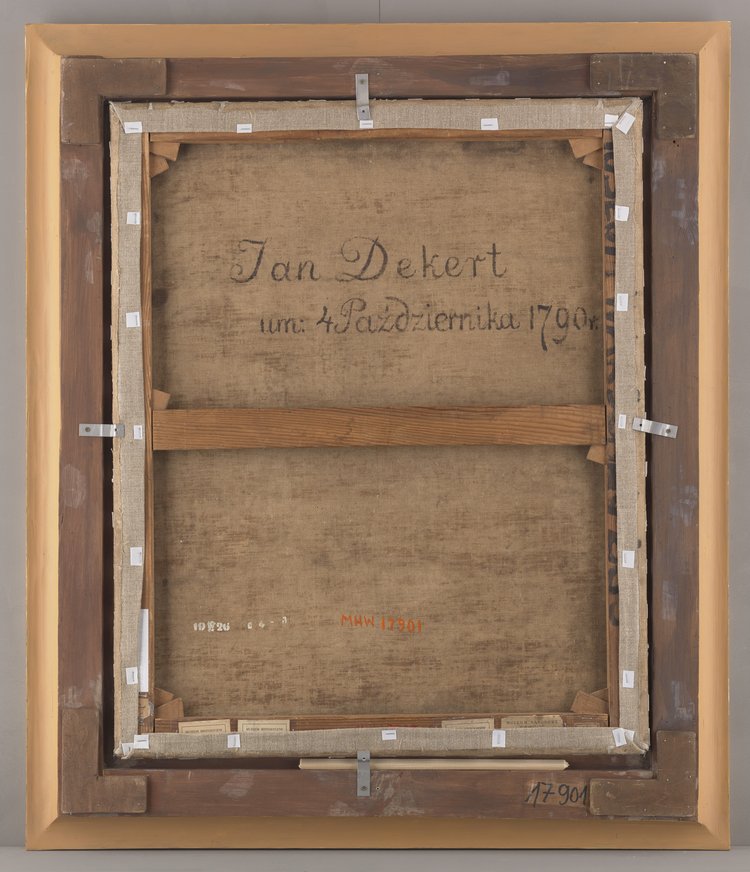 Jan Dekert
um: 4 Października 1790r.
MHW 17901
17901